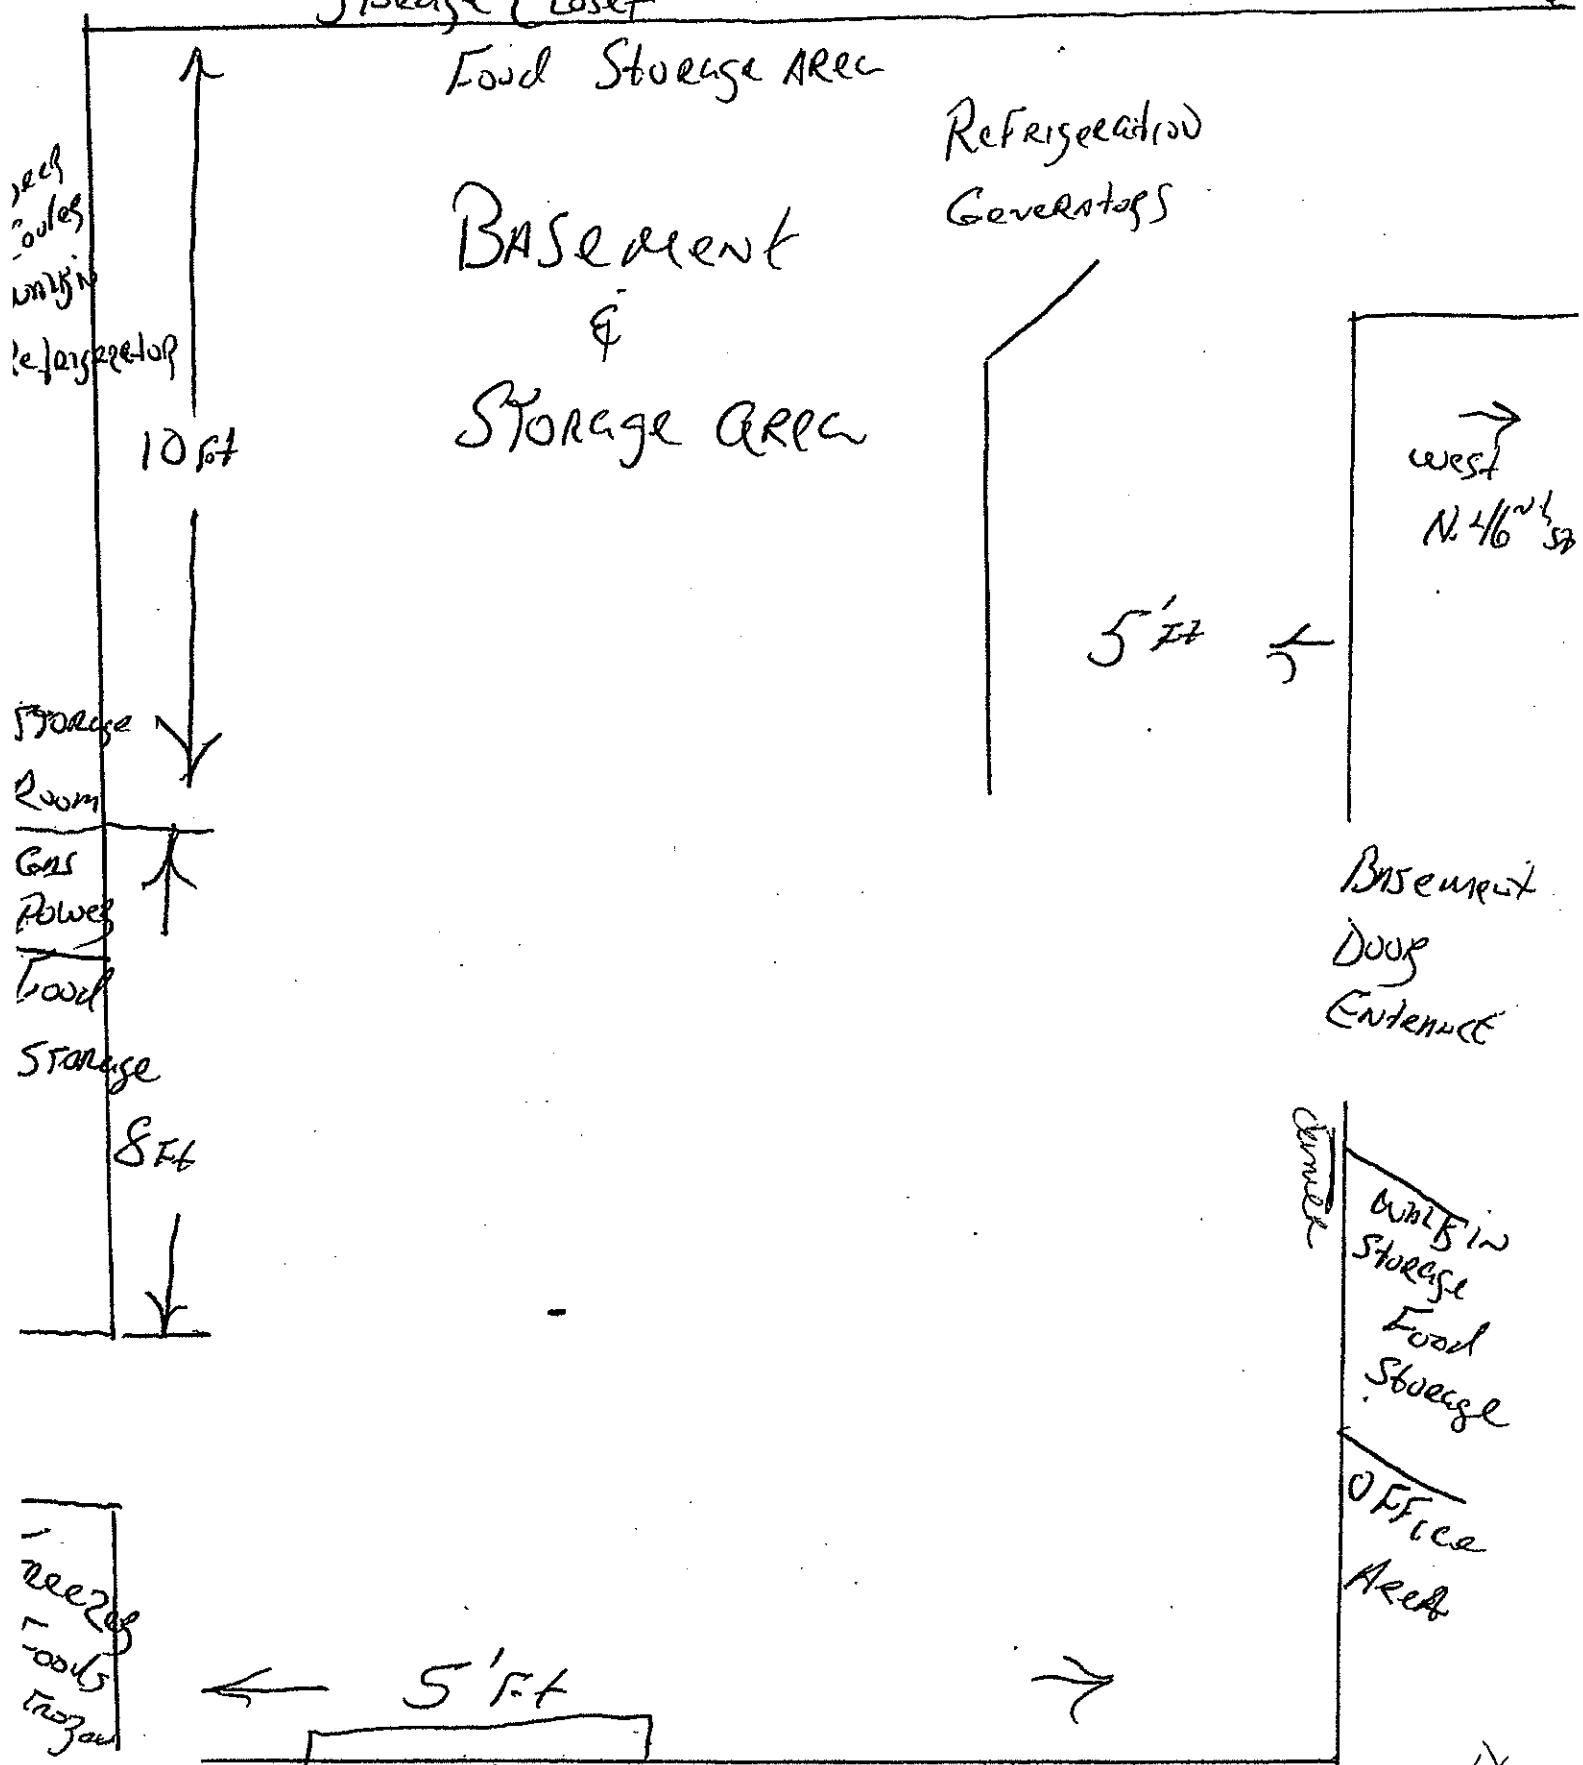 Storage Closet
Food Storage Area
Refrigeration
Generators
Basement
&
Storage Area
Walkin
Refrigerator
10 Ft
West
N. 46th St
5' Ft
Storage
Room
Gas
Power
Food
Storage
8 Ft
Basement
Door
Entrance
Walkin
Storage
Food
Storage
Office
Area
Freezer
Foods
Frozen
5' Ft